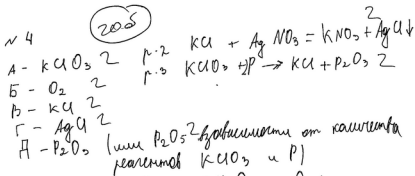 20об
№ 4
А - KClO3 2
Б - O2 2
В - KCl 2
Г - AgCl 2
Д - P2O3 (или P2O5 2 в зависимости от количества
реагентов KClO3 и P)
р.2 KCl + AgNO3 = KNO3 + AgCl↓ 2
р.3 KClO3 + P → KCl + P2O3 2